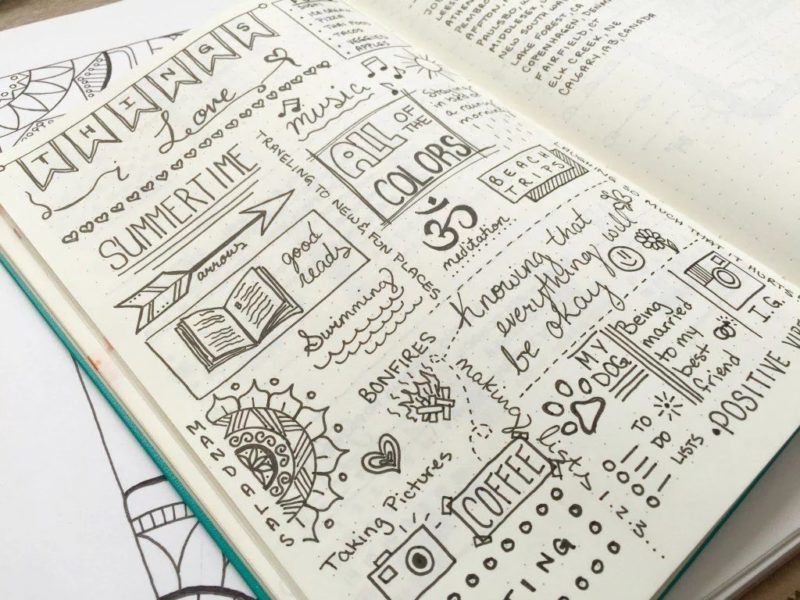 THINGS
i Love
SUMMERTIME
arrows
good
reads
music
PIZZA
TACOS
APPLES
ALL OF
THE
COLORS
TRAVELING TO NEW & FUN PLACES
BEACH
TRIPS
ॐ
meditation
LAUGHING SO MUCH THAT IT HURTS
Swimming
Knowing that
everything will
be okay
I.G.
BONFIRES
MY
DOG
Being
married
to my
best
friend
MANDALAS
making lists
TO
DO
LISTS
1
2
3
• POSITIVE
Taking Pictures
COFFEE
TING
PAULSBO
MIDDLESEX
NEW SOUTH
LAKE FOREST, CA
COPENHAGEN, DENM
FAIRFIELD, CT
ELK CREEK, NE
CALGARY, AB, CANADA